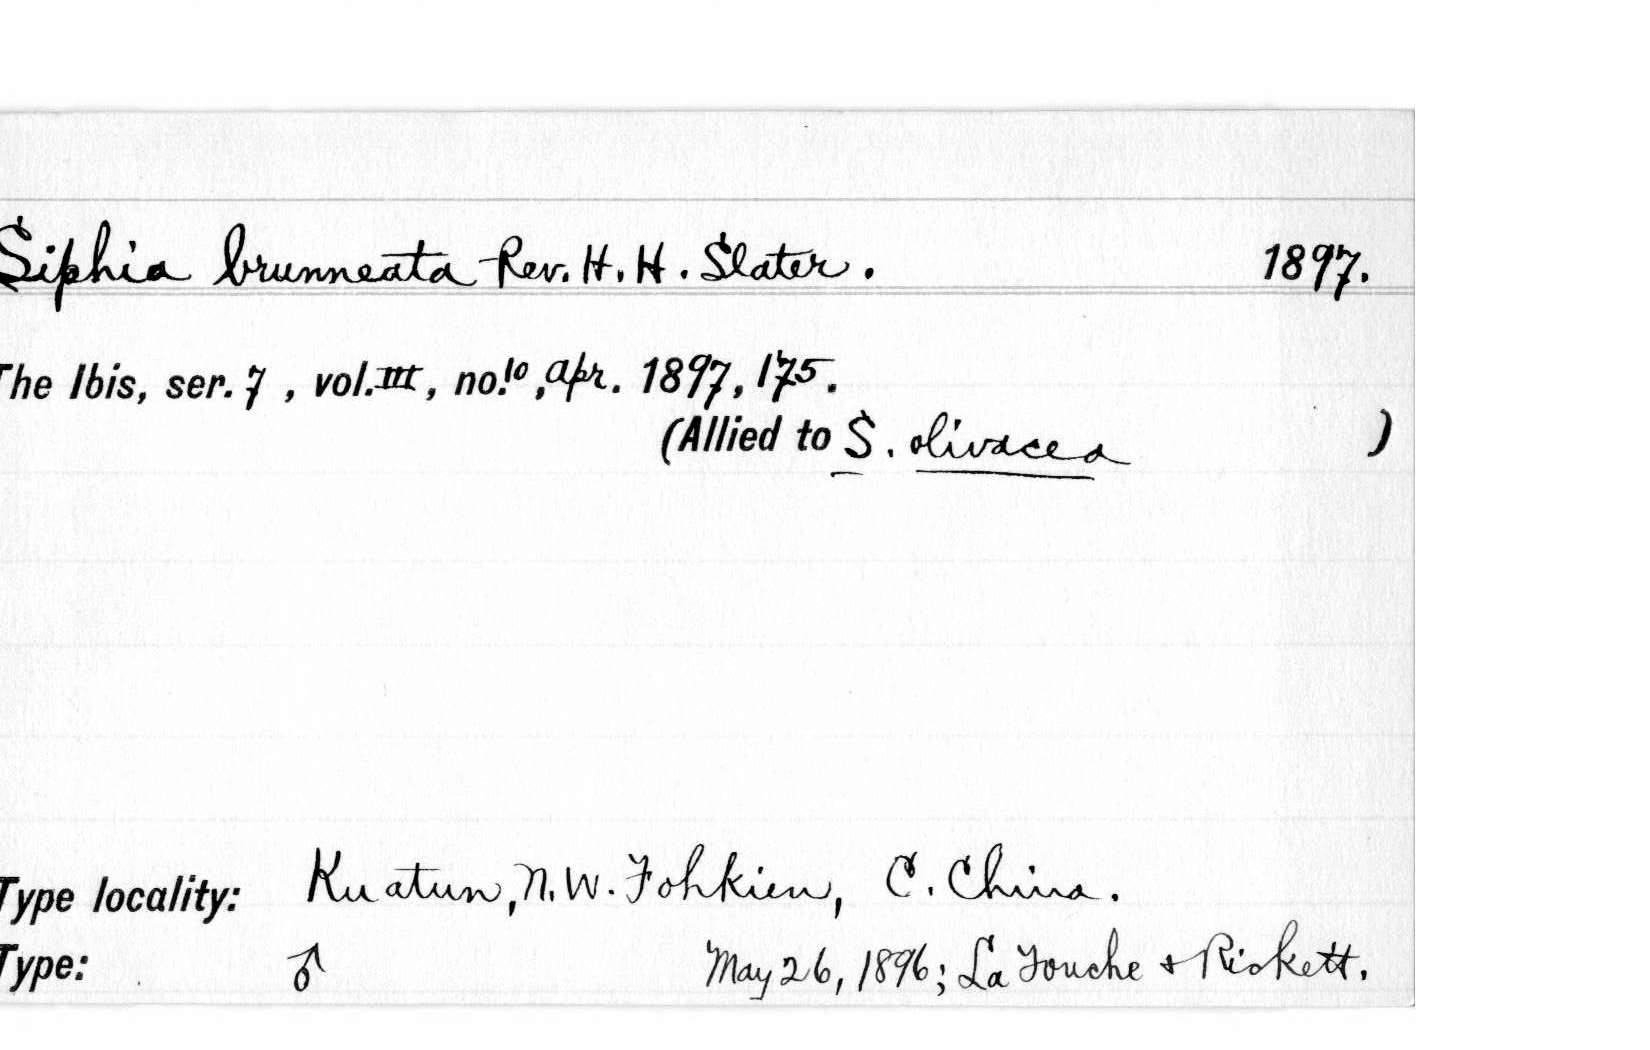 Siphia brunneata Rev. H. H. Slater. 1897.
The Ibis, ser. 7, vol. III, no. 10, Apr. 1897, 175.
(Allied to S. olivacea )
Type locality: Kuatun, N.W. Fohkien, C. China.
Type: ♂ May 26, 1896; La Touche & Rickett.